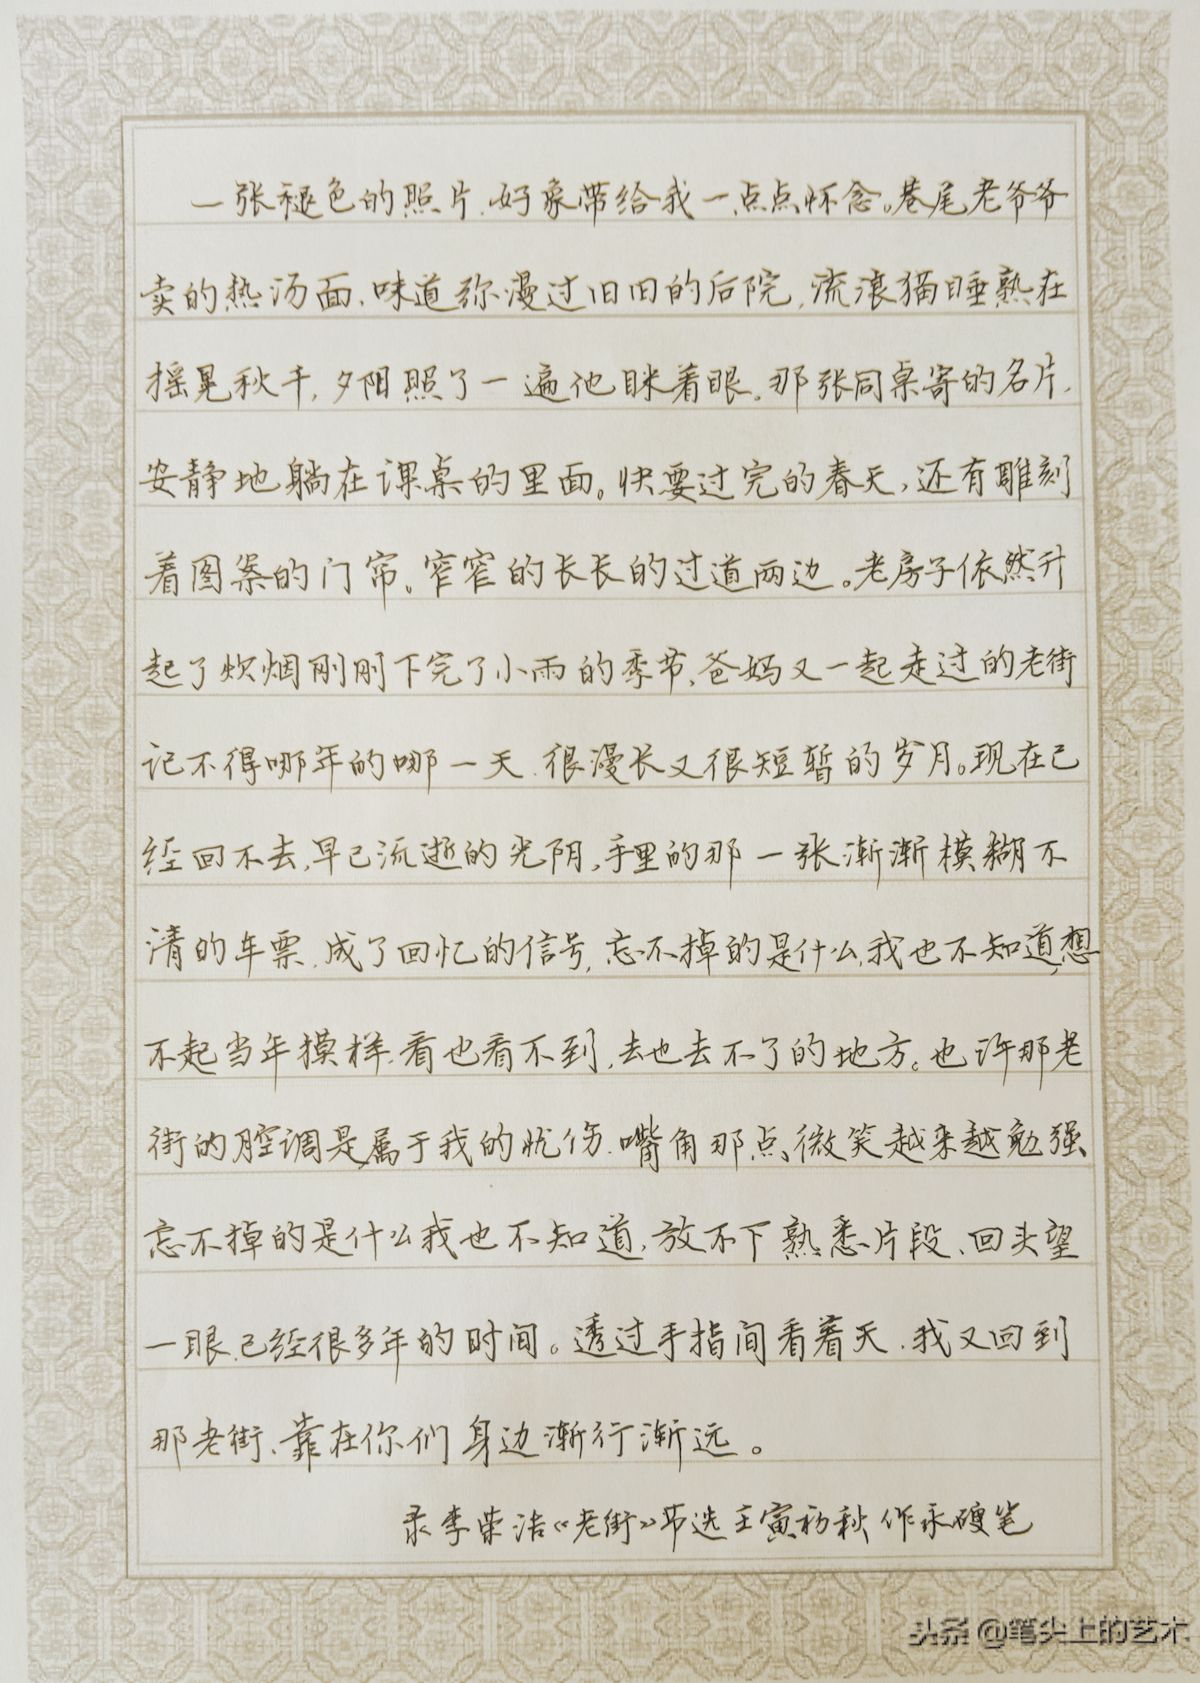 一张褪色的照片,好象带给我一点点怀念。巷尾老爷爷
卖的热汤面,味道弥漫过旧旧的后院,流浪猫睡熟在
摇晃秋千,夕阳照了一遍他眯着眼。那张同桌寄的名片,
安静地躺在课桌的里面。快要过完的春天,还有雕刻
着图案的门帘。窄窄的长长的过道两边。老房子依然升
起了炊烟刚刚下完了小雨的季节,爸妈又一起走过的老街
记不得哪年的哪一天,很漫长又很短暂的岁月。现在已
经回不去,早已流逝的光阴,手里的那一张渐渐模糊不
清的车票,成了回忆的信号,忘不掉的是什么,我也不知道,想
不起当年模样,看也看不到,去也去不了的地方。也许那老
街的腔调是属于我的忧伤,嘴角那点微笑越来越勉强
忘不掉的是什么我也不知道,放不下熟悉片段、回头望
一眼,已经很多年的时间。透过手指间看着天,我又回到
那老街、靠在你们身边渐行渐远。
录李荣浩《老街》节选壬寅初秋作永硬笔
头条@笔尖上的艺术